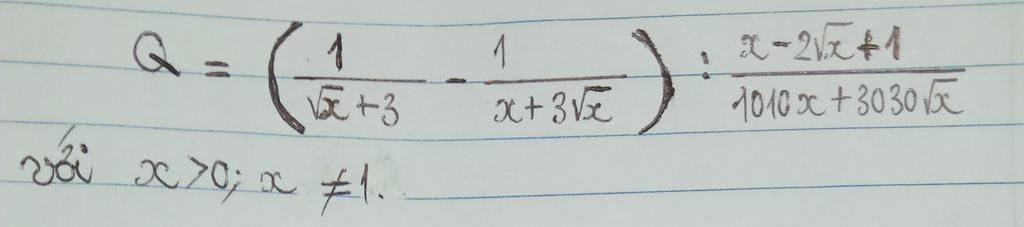 Q = ( 1/(√x + 3) - 1/(x + 3√x) ) : (x - 2√x + 1)/(1010x + 3030√x)
với x > 0; x ≠ 1.